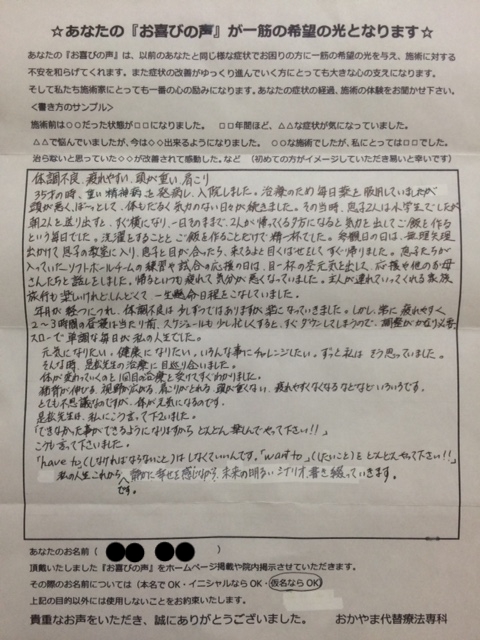 ☆あなたの『お喜びの声』が一筋の希望の光となります☆
あなたの『お喜びの声』は、以前のあなたと同じ様な症状でお困りの方に一筋の希望の光を与え、施術に対する
不安を和らげてくれます。また症状の改善がゆっくり進んでいく方にとっても大きな心の支えになります。
そして私たち施術家にとっても一番の心の励みになります。あなたの症状の経過、施術の体験をお聞かせ下さい。
＜書き方のサンプル＞
施術前は○○だった状態が□□になりました。 □□年間ほど、△△な症状が気になっていました。
△△で悩んでいましたが、今は◇◇出来るようになりました。 ○○な施術でしたが、私にとっては□□でした。
治らないと思っていた◇◇が改善されて感動した。など （初めての方がイメージしていただき易いと幸いです）
体調不良、疲れやすい、頭が重い、肩こり
35才の時、重い精神病を発病し、入院しました。治療のため毎日薬を服用していましたが
頭が悪く、ぼーっとして、体もだるく気力のない日々が続きました。その当時、息子2人は小学生でしたが
朝2人を送り出すと、すぐ横になり、一日そのままで、2人が帰ってくる夕方になると気力を出してご飯を作る
という毎日でした。洗濯をすることと、ご飯を作ることだけで精一杯でした。参観日の日は、無理矢理
出かけて息子の教室に入り、息子と目が合ったら、来たよと目くばせをして、すぐ帰りました。息子たちが
入っていたソフトボールチームの練習や試合の応援の日は、目一杯の空元気を出して、応援や他のお母
さんたちと話をしました。帰るといつも疲れて気分が悪くなっていました。主人が連れていってくれる家族
旅行も楽しいけれどしんどくて一生懸命日程をこなしていました。
年月が経つにつれ、体調不良は少しずつではありますが楽になっていきました。しかし、常に疲れやすく、
2〜3時間の昼寝は当たり前、スケジュールも少し忙しくすると、すぐダウンしてしまうので、調整がかなり必要、
スローで単調な毎日が私の人生でした。
元気になりたい。健康になりたい。いろんな事にチャレンジしたい。ずっと私はそう思っていました。
そんな時、是松先生の治療に目巡り合いました。
体が変わっていくのを1回目の治療を受けてすぐわかりました。
猫背が伸びる、視野が広がる、肩こりがとれる、頭が重くない、疲れやすくなくなるなどなどいろいろです。
とても不思議なのですが、体が元気になるのです。
是松先生は、私にこう言って下さいました。
「できなかった事ができるようになりますから どんどん楽しんでやって下さい!!」
こうも言って下さいました。
「have to」(しなければならないこと)はしなくていいんです。「want to」(したいこと)をどんどんやって下さい!!」
私の人生これからです。静かに幸せを感じながら、未来の明るいシナリオ、書き綴っていきます。
あなたのお名前（ ）
頂戴いたしました『お喜びの声』をホームページ掲載や院内掲示させていただきます。
その際のお名前については（本名でOK・イニシャルならOK・仮名ならOK）
上記の目的以外には使用しないことをお約束いたします。
貴重なお声をいただき、誠にありがとうございました。 おかやま代替療法専科